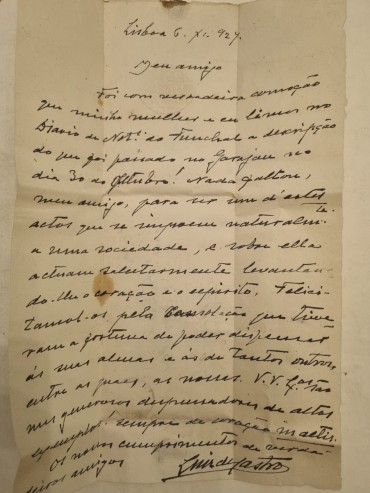 Lisboa 6. XI. 927.
Meu amigo
Foi com verdadeira comoção
que minha mulher e eu lêmos no
Diario de Not.as do Funchal a descripção
do que foi passado no Garajau no
dia 30 de Outubro! Nada faltou,
meu amigo, para ser um d'estes
actos que se impoem naturalm.te
a uma sociedade, e sobre ella
actuam salutarmente levantan
do-lhe o coração e o espirito. Felici-
tamol-os, pela consolação que tive-
ram a fortuna de poder dispensar
ás suas almas e ás de tantos outros,
entre as quaes, as nossas. V.V. Ex.as são
uns generosos de altos
exemplos! sempre de coração
Os nossos cumprimentos de verda-
deiros amigos
Luiz de Castro